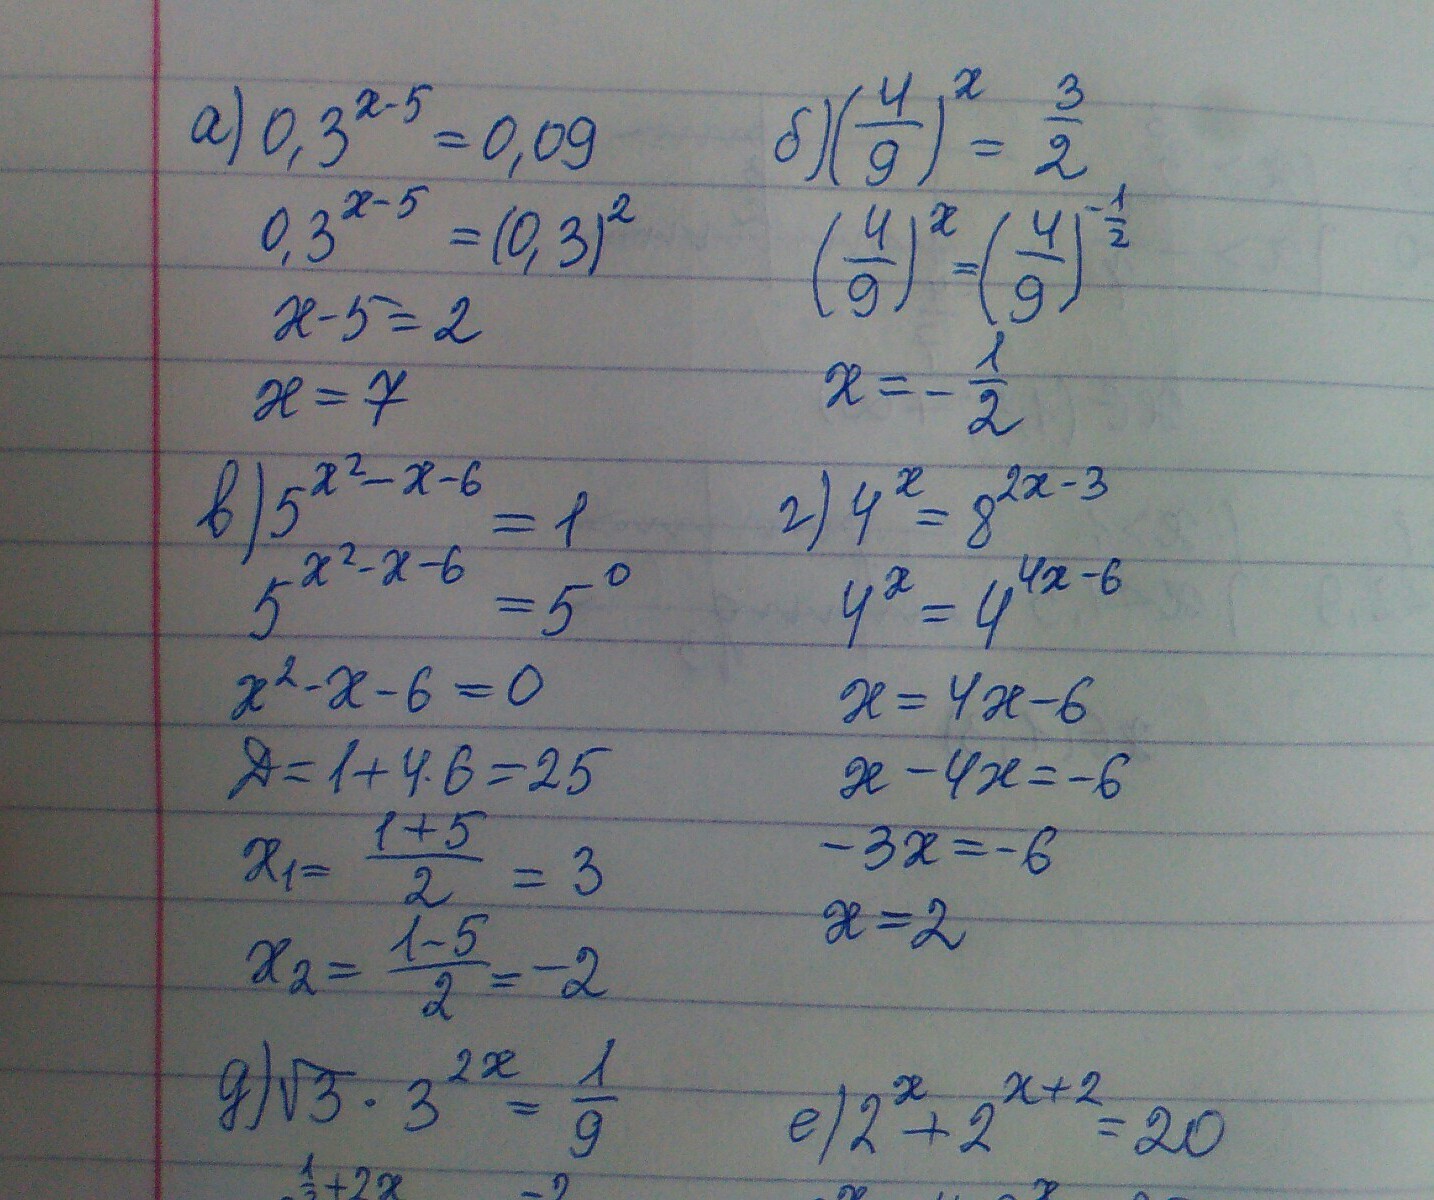 а) 0,3^(x-5) = 0,09
0,3^(x-5) = (0,3)^2
x-5=2
x = 7
б) (4/9)^x = 3/2
(4/9)^x = (4/9)^(-1/2)
x = -1/2
в) 5^(x^2-x-6) = 1
5^(x^2-x-6) = 5^0
x^2-x-6=0
Д=1+4·6=25
x₁= (1+5)/2 = 3
x₂= (1-5)/2 = -2
г) 4^x = 8^(2x-3)
4^x = 4^(4x-6)
x=4x-6
x-4x=-6
-3x=-6
x=2
д) √3 · 3^(2x) = 1/9
е) 2^x + 2^(x+2) = 20